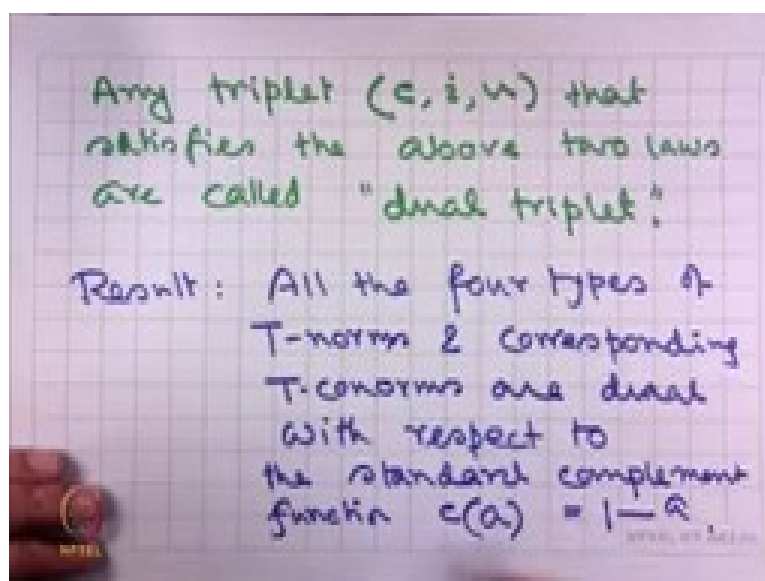 Any triplet (c, i, u) that
satisfies the above two laws
are called "dual triplet".
Result: All the four types of
T-norms & corresponding
T-conorms are dual
with respect to
the standard complement
function c(a) = 1-a.
NPTEL